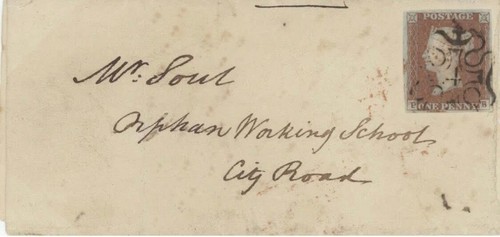 POSTAGE
ONE PENNY
Mr. Soul
Orphan Working School
City Road